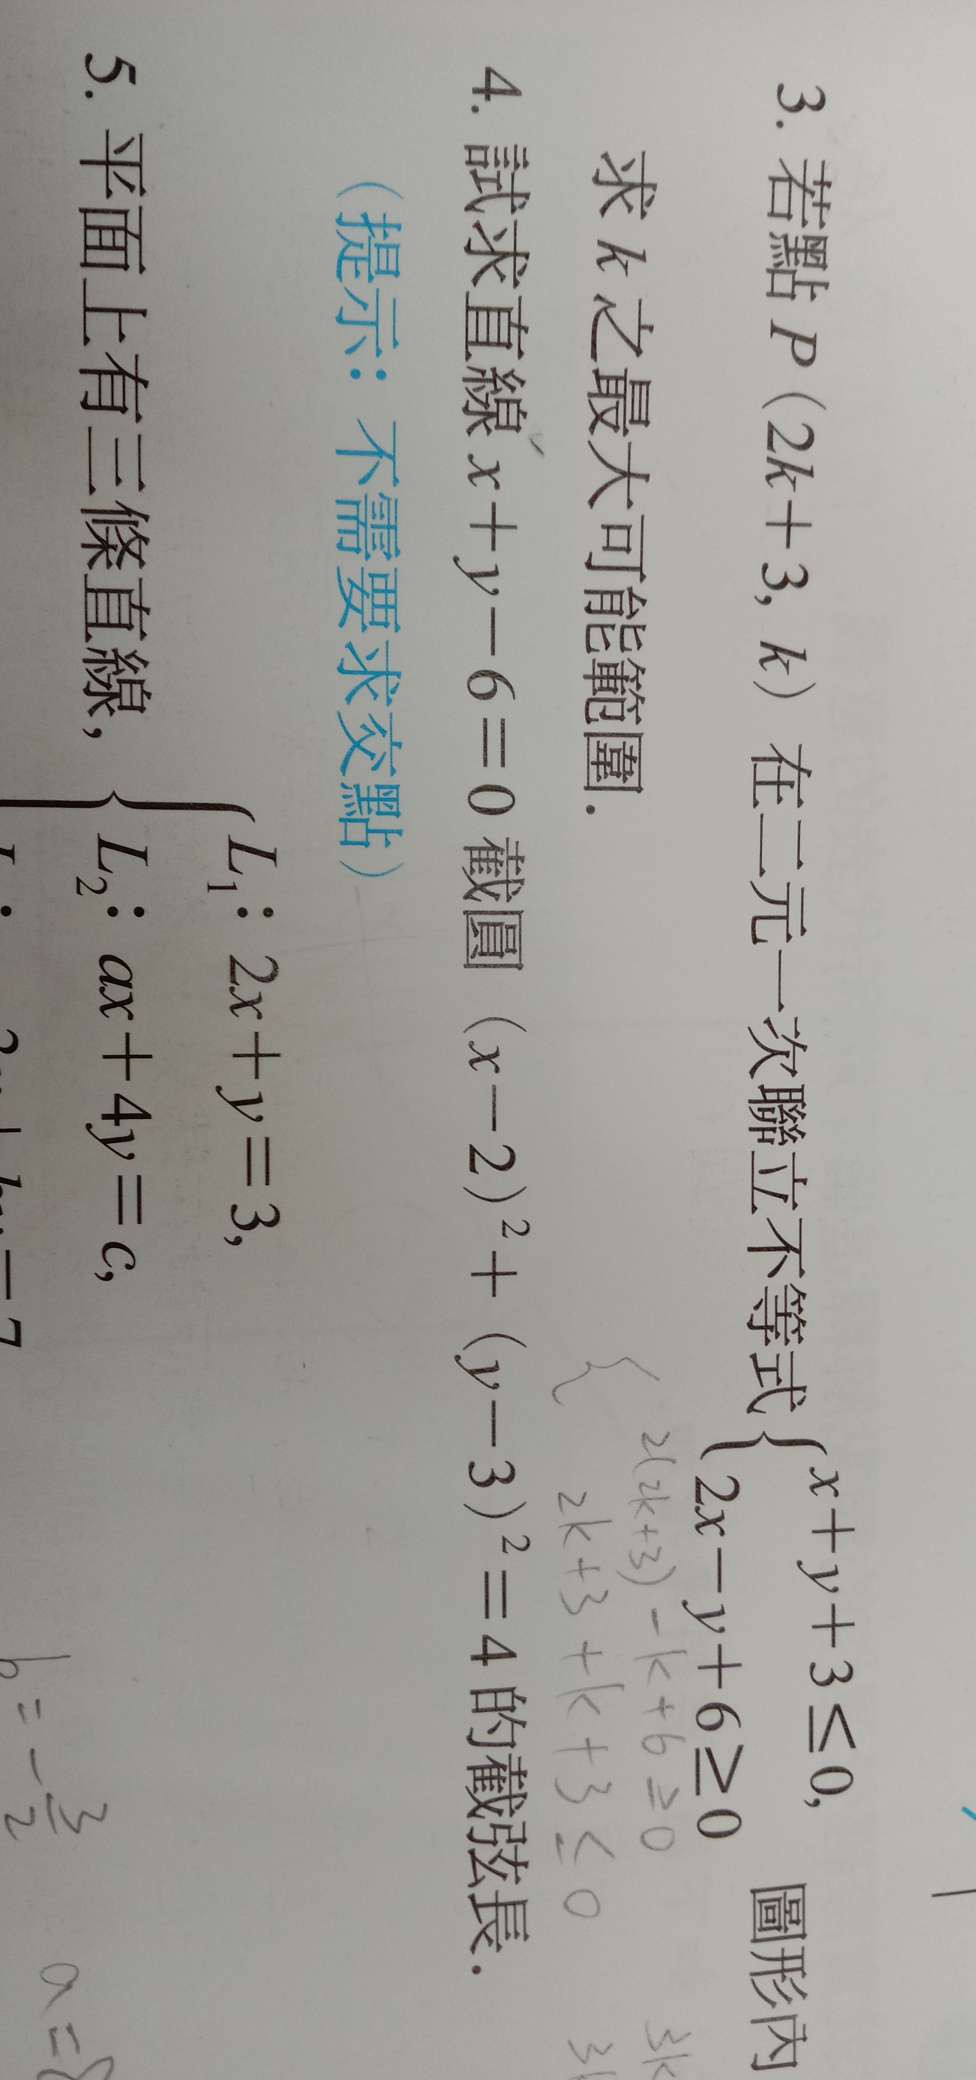 3. 若點 P (2k+3, k) 在二元一次聯立不等式 { x+y+3≤0, 2x−y+6≥0 圖形內
求 k 之最大可能範圍.
2(2k+3)−k+6≥0
2k+3+k+3≤0
4. 試求直線 x+y−6=0 截圓 (x−2)²+(y−3)²=4 的截弦長.
(提示: 不需要求交點)
5. 平面上有三條直線, { L₁: 2x+y=3,
L₂: ax+4y=c,
b=−3/2
a=